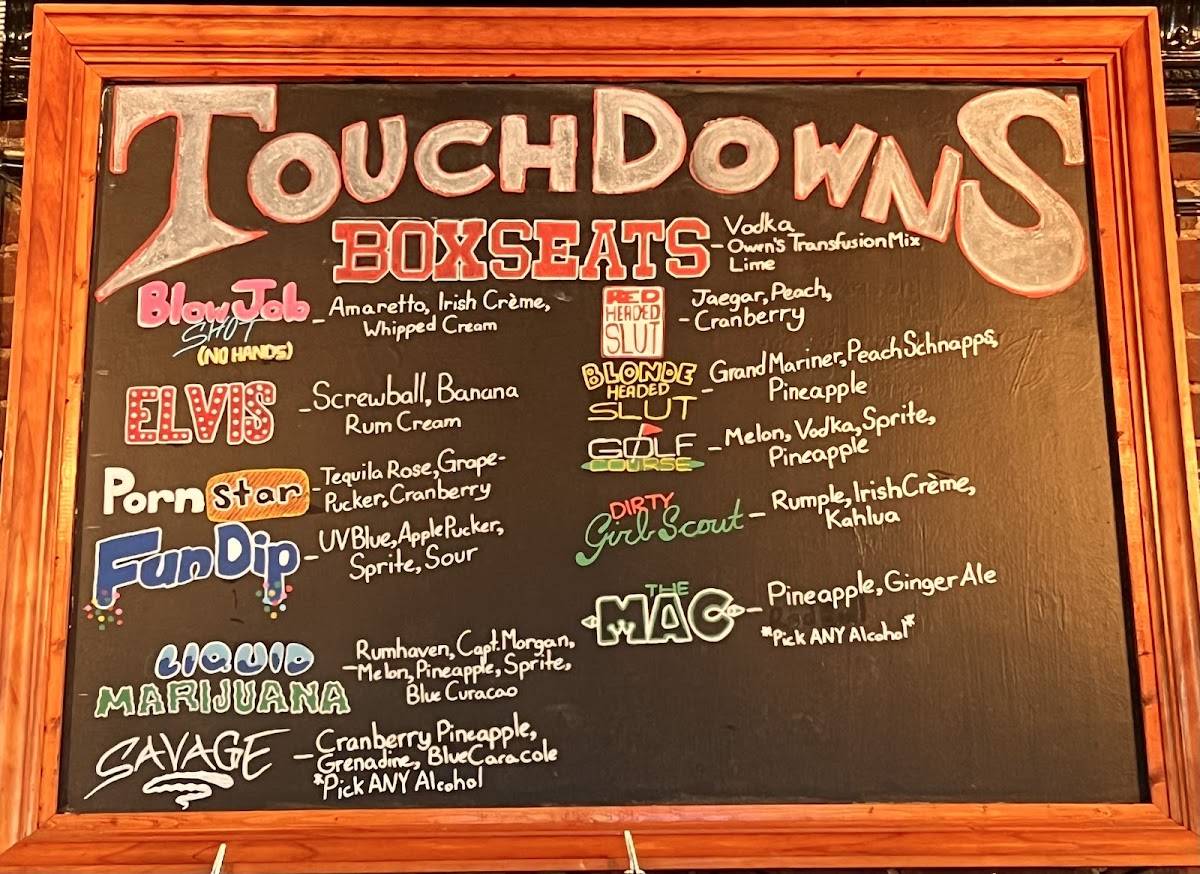 TOUCHDOWNS
BOXSEATS
- Vodka
Owen's Transfusion Mix
Lime
Blow Job
SHOT
(NO HANDS)
- Amaretto, Irish Crème,
Whipped Cream
ELVIS
- Screwball, Banana
Rum Cream
Porn Star
- Tequila Rose, Grape-
Pucker, Cranberry
Fun Dip
- UV Blue, Apple Pucker,
Sprite, Sour
LIQUID
MARIJUANA
- Rumhaven, Capt. Morgan,
Melon, Pineapple, Sprite,
Blue Curacao
SAVAGE
- Cranberry, Pineapple,
Grenadine, Blue Caracole
*Pick ANY Alcohol
RED
HEADED
SLUT
- Jaegar, Peach,
Cranberry
BLONDE
HEADED
SLUT
- Grand Mariner, Peach Schnapps,
Pineapple
GOLF
COURSE
- Melon, Vodka, Sprite,
Pineapple
DIRTY
Girl Scout
- Rumple, Irish Crème,
Kahlua
THE
MAC
- Pineapple, Ginger Ale
*Pick ANY Alcohol*